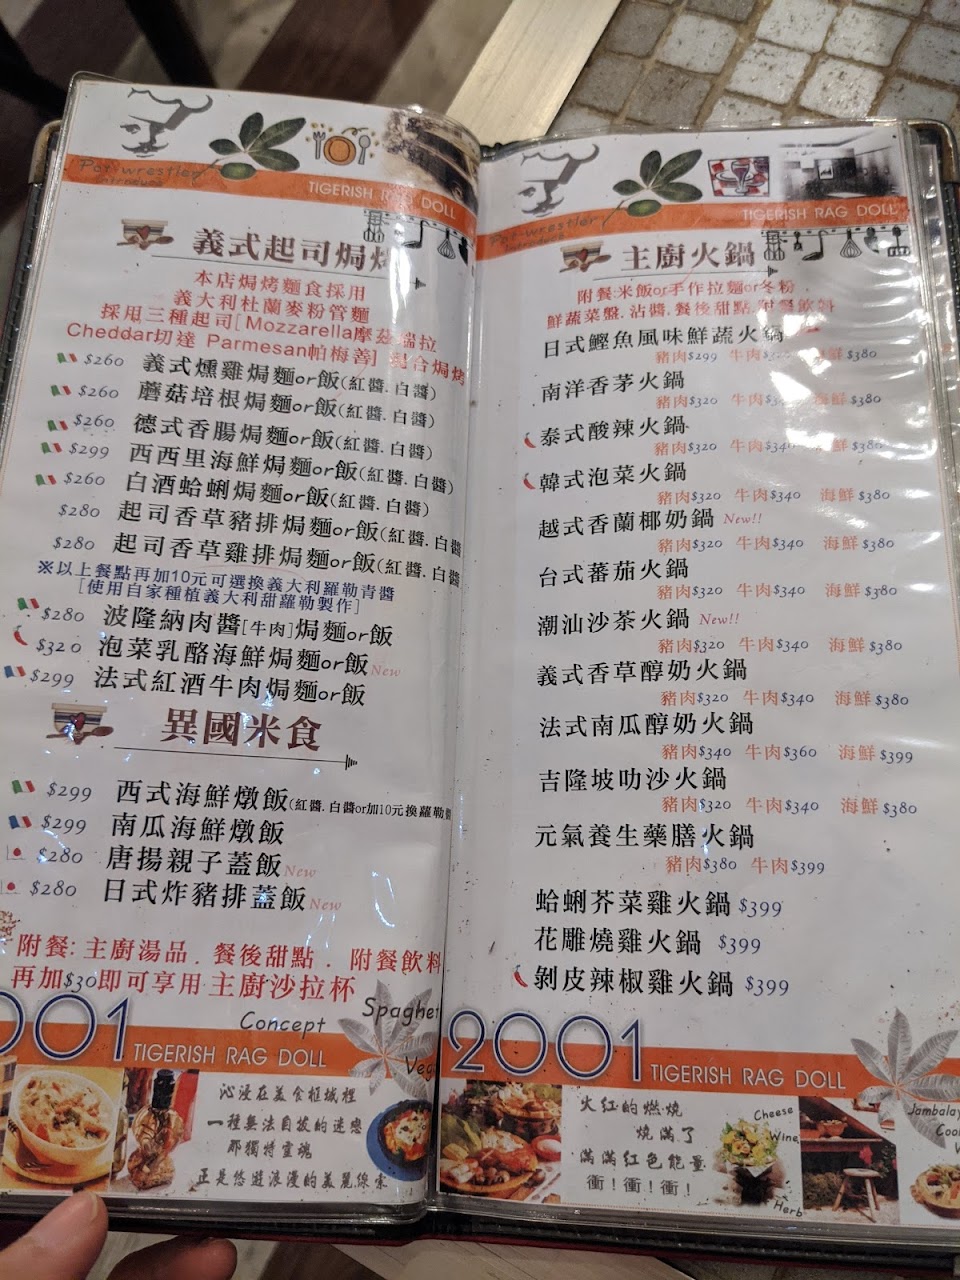 Pot-wrestler
TIGERISH RAG DOLL
義式起司焗烤
本店焗烤麵食採用
義大利杜蘭麥粉管麵
採用三種起司[Mozzarella摩茲瑞拉
Cheddar切達 Parmesan帕梅善] 混合焗烤
$260 義式燻雞焗麵or飯(紅醬.白醬)
$260 蘑菇培根焗麵or飯(紅醬.白醬)
$260 德式香腸焗麵or飯(紅醬.白醬)
$299 西西里海鮮焗麵or飯(紅醬.白醬)
$260 白酒蛤蜊焗麵or飯(紅醬.白醬)
$280 起司香草豬排焗麵or飯(紅醬.白醬
$280 起司香草雞排焗麵or飯(紅醬.白醬
※以上餐點再加10元可選換義大利羅勒青醬
[使用自家種植義大利甜蘿勒製作]
$280 波隆納肉醬[牛肉]焗麵or飯
$320 泡菜乳酪海鮮焗麵or飯 New
$299 法式紅酒牛肉焗麵or飯
異國米食
$299 西式海鮮燉飯(紅醬.白醬or加10元換蘿勒
$299 南瓜海鮮燉飯
$280 唐揚親子蓋飯 New
$280 日式炸豬排蓋飯 New
附餐:主廚湯品.餐後甜點.附餐飲料
再加$30即可享用 主廚沙拉杯
001 TIGERISH RAG DOLL
Concept
Spaghet
Veg
沁浸在美食框城裡
一種無法自拔的迷戀
那獨特靈魂
正是悠遊浪漫的美麗線索
Pot-wrestler
TIGERISH RAG DOLL
主廚火鍋
附餐:米飯or手作拉麵or冬粉
鮮蔬菜盤.沾醬.餐後甜點.附餐飲料
日式鰹魚風味鮮蔬火鍋
豬肉$299 牛肉 海鮮$380
南洋香茅火鍋
豬肉$320 牛肉 海鮮$380
泰式酸辣火鍋
豬肉$320 牛肉$340 海鮮$380
韓式泡菜火鍋
豬肉$320 牛肉$340 海鮮$380
越式香蘭椰奶鍋 New!!
豬肉$320 牛肉$340 海鮮$380
台式蕃茄火鍋
豬肉$320 牛肉$340 海鮮$380
潮汕沙茶火鍋 New!!
豬肉$320 牛肉$340 海鮮$380
義式香草醇奶火鍋
豬肉$320 牛肉$340 海鮮$380
法式南瓜醇奶火鍋
豬肉$340 牛肉$360 海鮮$399
吉隆坡叻沙火鍋
豬肉$320 牛肉$340 海鮮$380
元氣養生藥膳火鍋
豬肉$380 牛肉$399
蛤蜊芥菜雞火鍋 $399
花雕燒雞火鍋 $399
剝皮辣椒雞火鍋 $399
2001 TIGERISH RAG DOLL
火紅的燃燒
燒滿了
滿滿紅色能量
衝!衝!衝!
Cheese
Wine
Herb
Jambalay
Coo